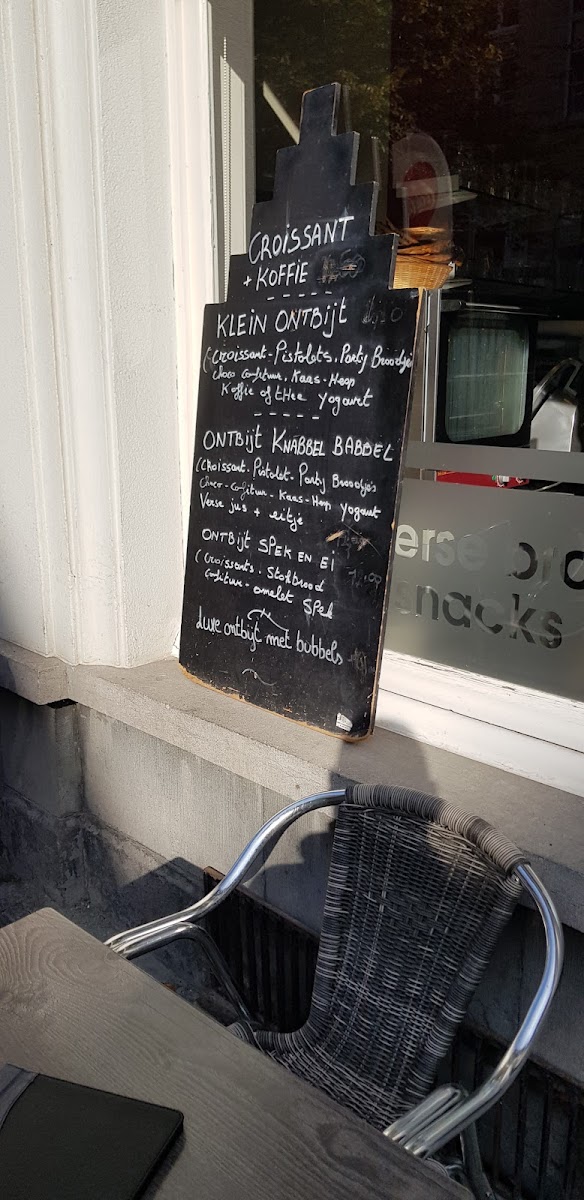 CROISSANT
+ KOFFIE
KLEIN ONTBIJT
(Croissant - Pistolets. Party Broodjes
Choco Confituur. Kaas - Hesp
Koffie of tHee yogourt
ONTBIJT KNABBEL BABBEL
(Croissant. Pistolet - Party Broodjes
Choco - Confituur - Kaas - Hesp yogourt
Verse jus + eitje
ONTBIJT SPEK EN EI
( Croissants. Stokbrood
Confituur - omelet SPek
Luxe ontbijt met bubbels
erse bro
snacks